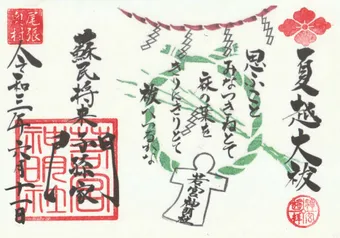 夏越大祓
思ふこと
みなつきねとて
麻の葉を
きりにきりても
祓へつるかな
若宮神明社
蘇民将来子孫家門
尾張
令和三年六月十一日
若宮
神明社